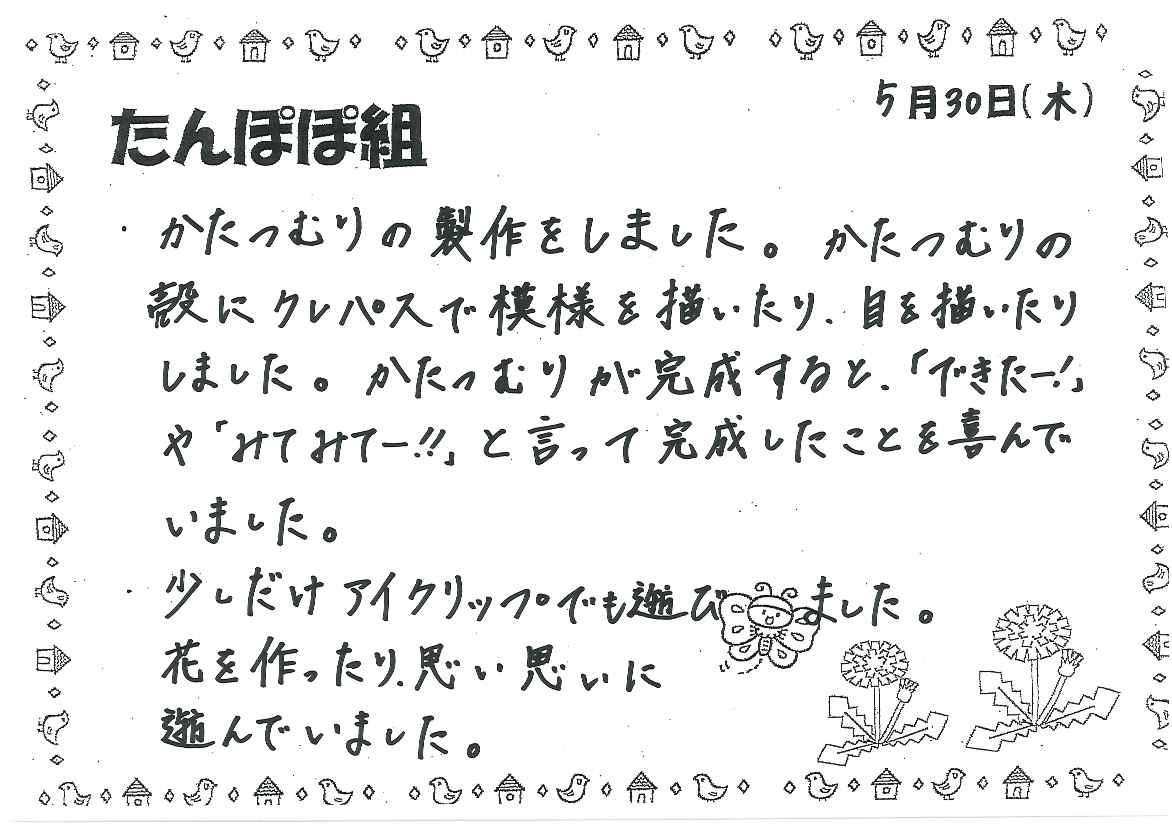 5月30日(木)
たんぽぽ組
・かたつむりの製作をしました。かたつむりの
殻にクレパスで模様を描いたり、目を描いたり
しました。かたつむりが完成すると、「できたー!」
や「みてみてー!!」と言って完成したことを喜んで
いました。
・少しだけアイクリップでも遊びました。
花を作ったり、思い思いに
遊んでいました。